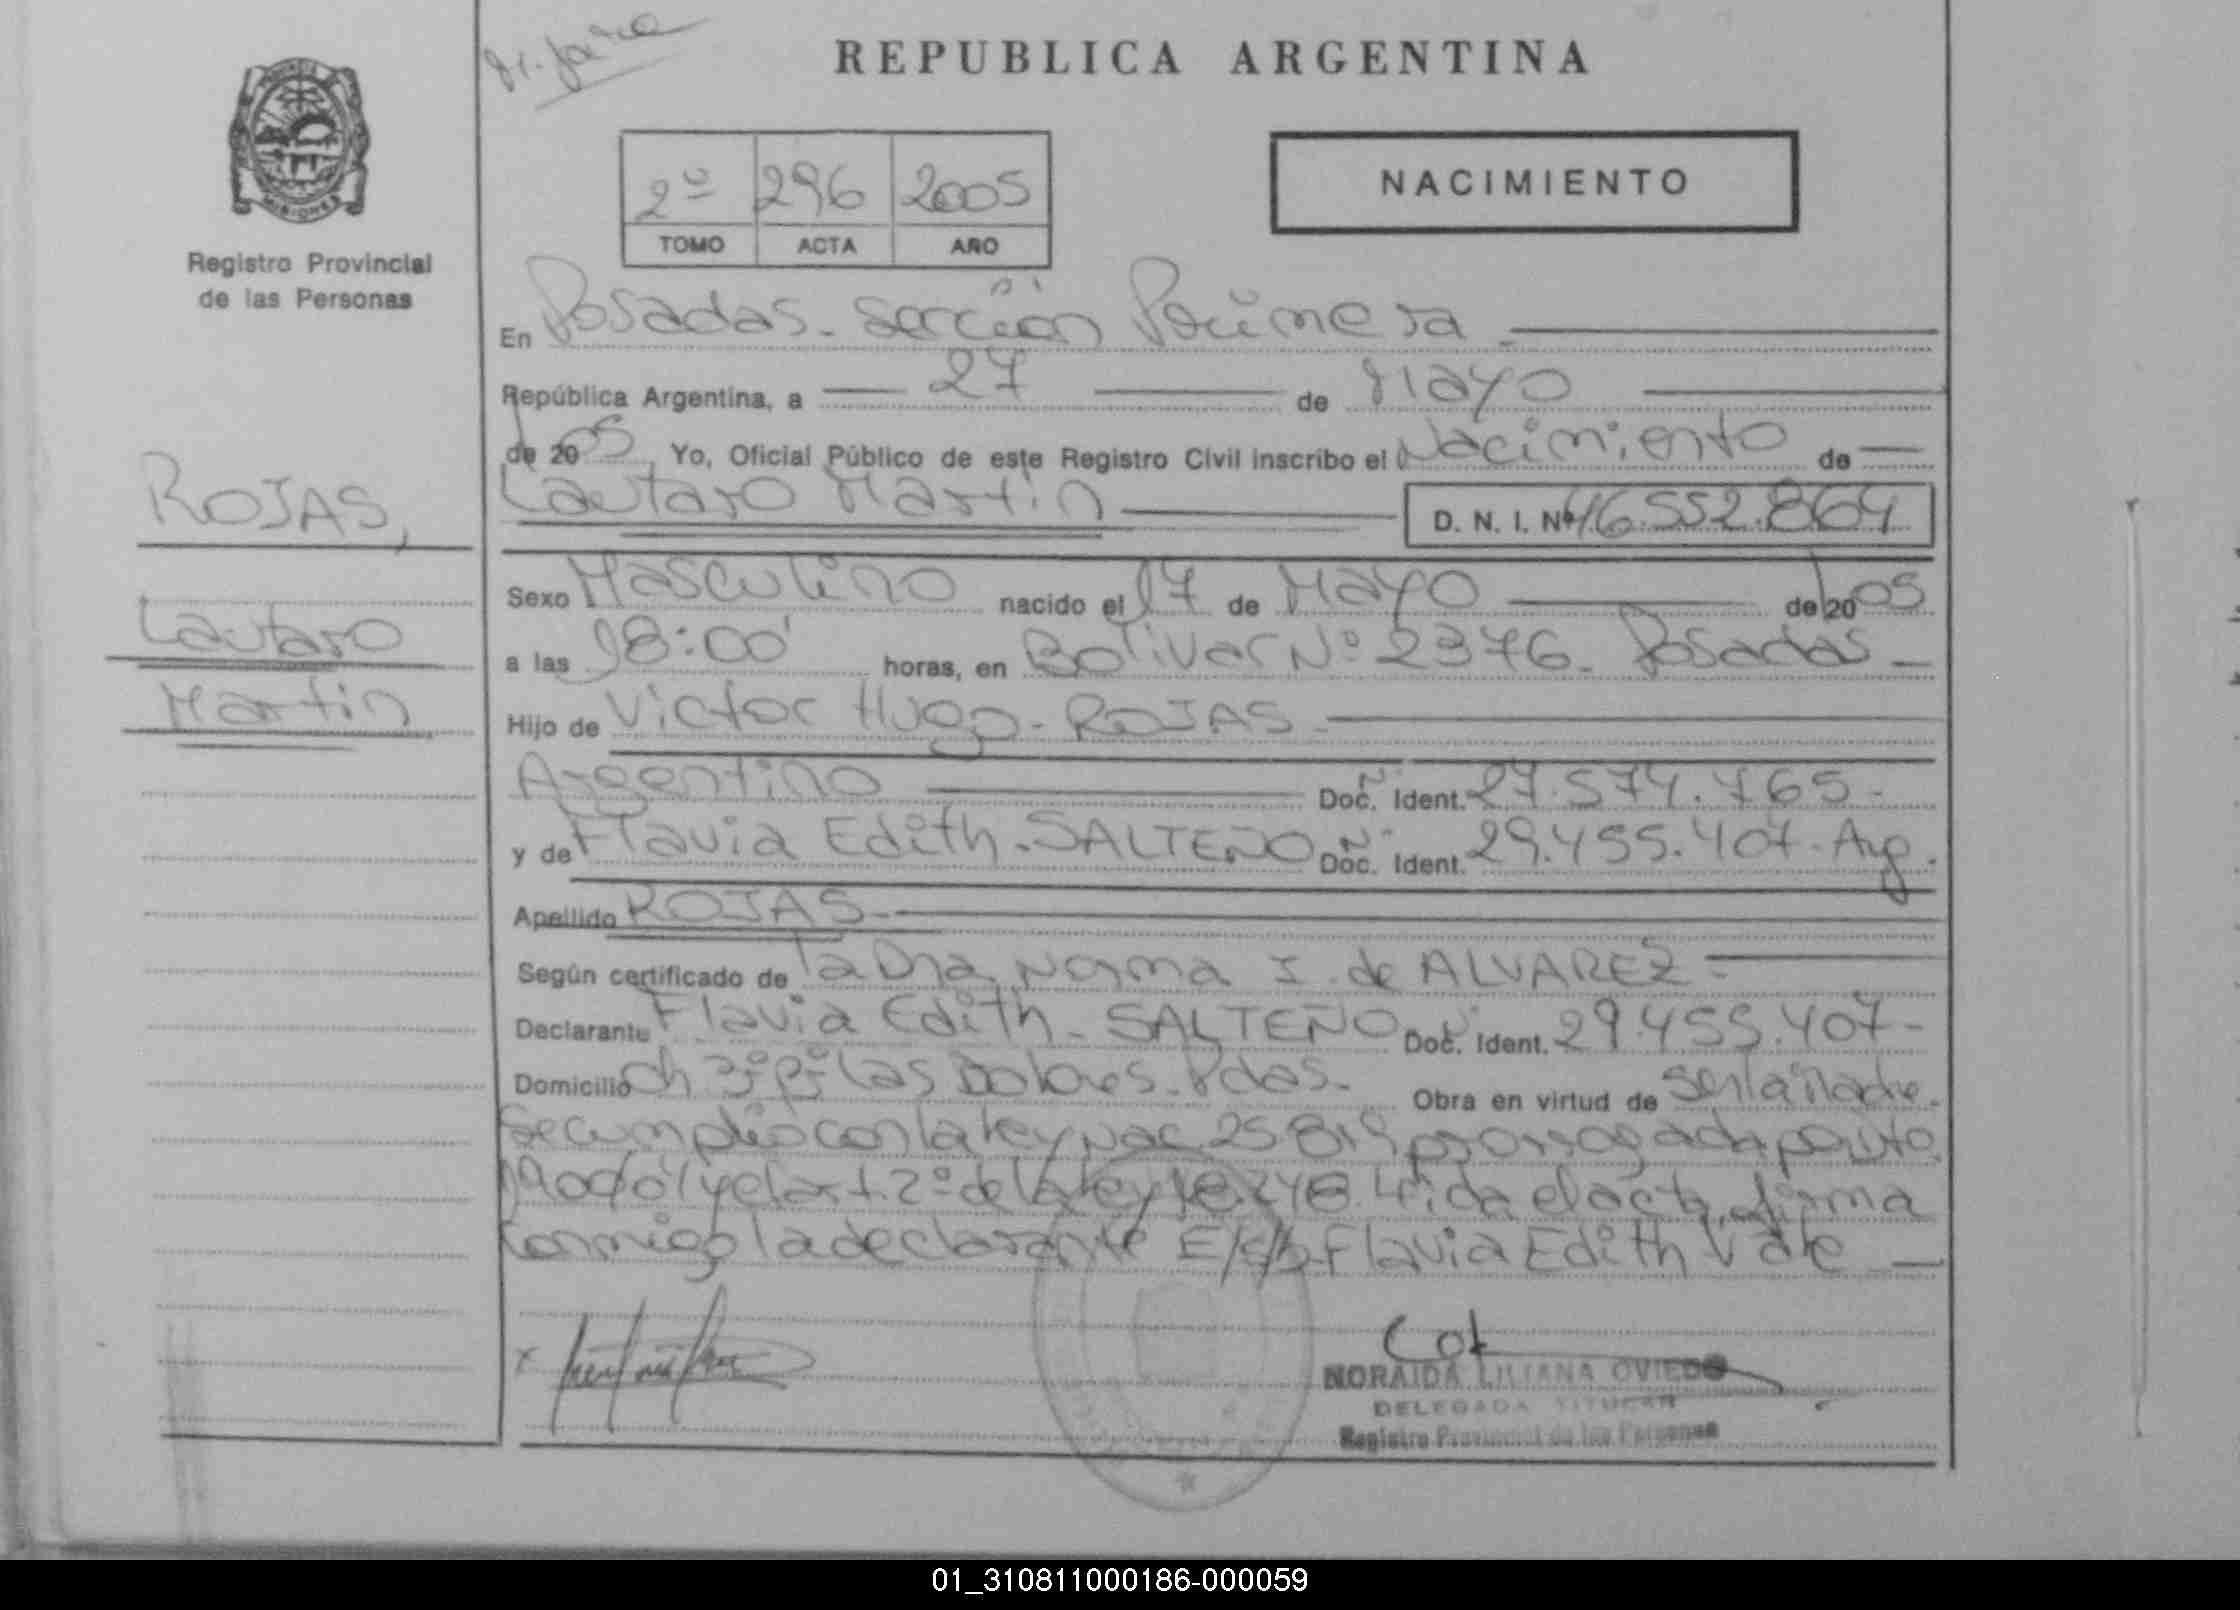 REPUBLICA ARGENTINA
MISIONES
Registro Provincial
de las Personas
2º 296 2005
TOMO ACTA AÑO
NACIMIENTO
En Posadas - Sección Primera
República Argentina, a 27 de Mayo
de 2005, Yo, Oficial Público de este Registro Civil inscribo el Nacimiento de
Lautaro Martin D. N. I. Nº 46.552.864
ROJAS,
Lautaro
Martin
Sexo Masculino nacido el 17 de Mayo de 2005
a las 18:00' horas, en Bolivar Nº 2376. Posadas
Hijo de Victor Hugo - ROJAS
Argentino Doc. Ident. 27.574.765.
y de Flavia Edith - SALTEÑO Doc. Ident. 29.455.407. Arg.
Apellido ROJAS
Según certificado de la Dra. Norma I. de ALVAREZ
Declarante Flavia Edith - SALTEÑO Doc. Ident. 29.455.407
Domicilio Ch Las Dolores. Pdas. Obra en virtud de ser la Madre.
Se cumplió con la ley Nac. 25819 prorrogada por
y el art. 2º de la ley 18.248. Leida el acta, firma
conmigo la declarante E/ Flavia Edith Vale
NORAIDA LILIANA OVIEDO
DELEGADA TITULAR
Registro Provincial de las Personas
01_310811000186-000059